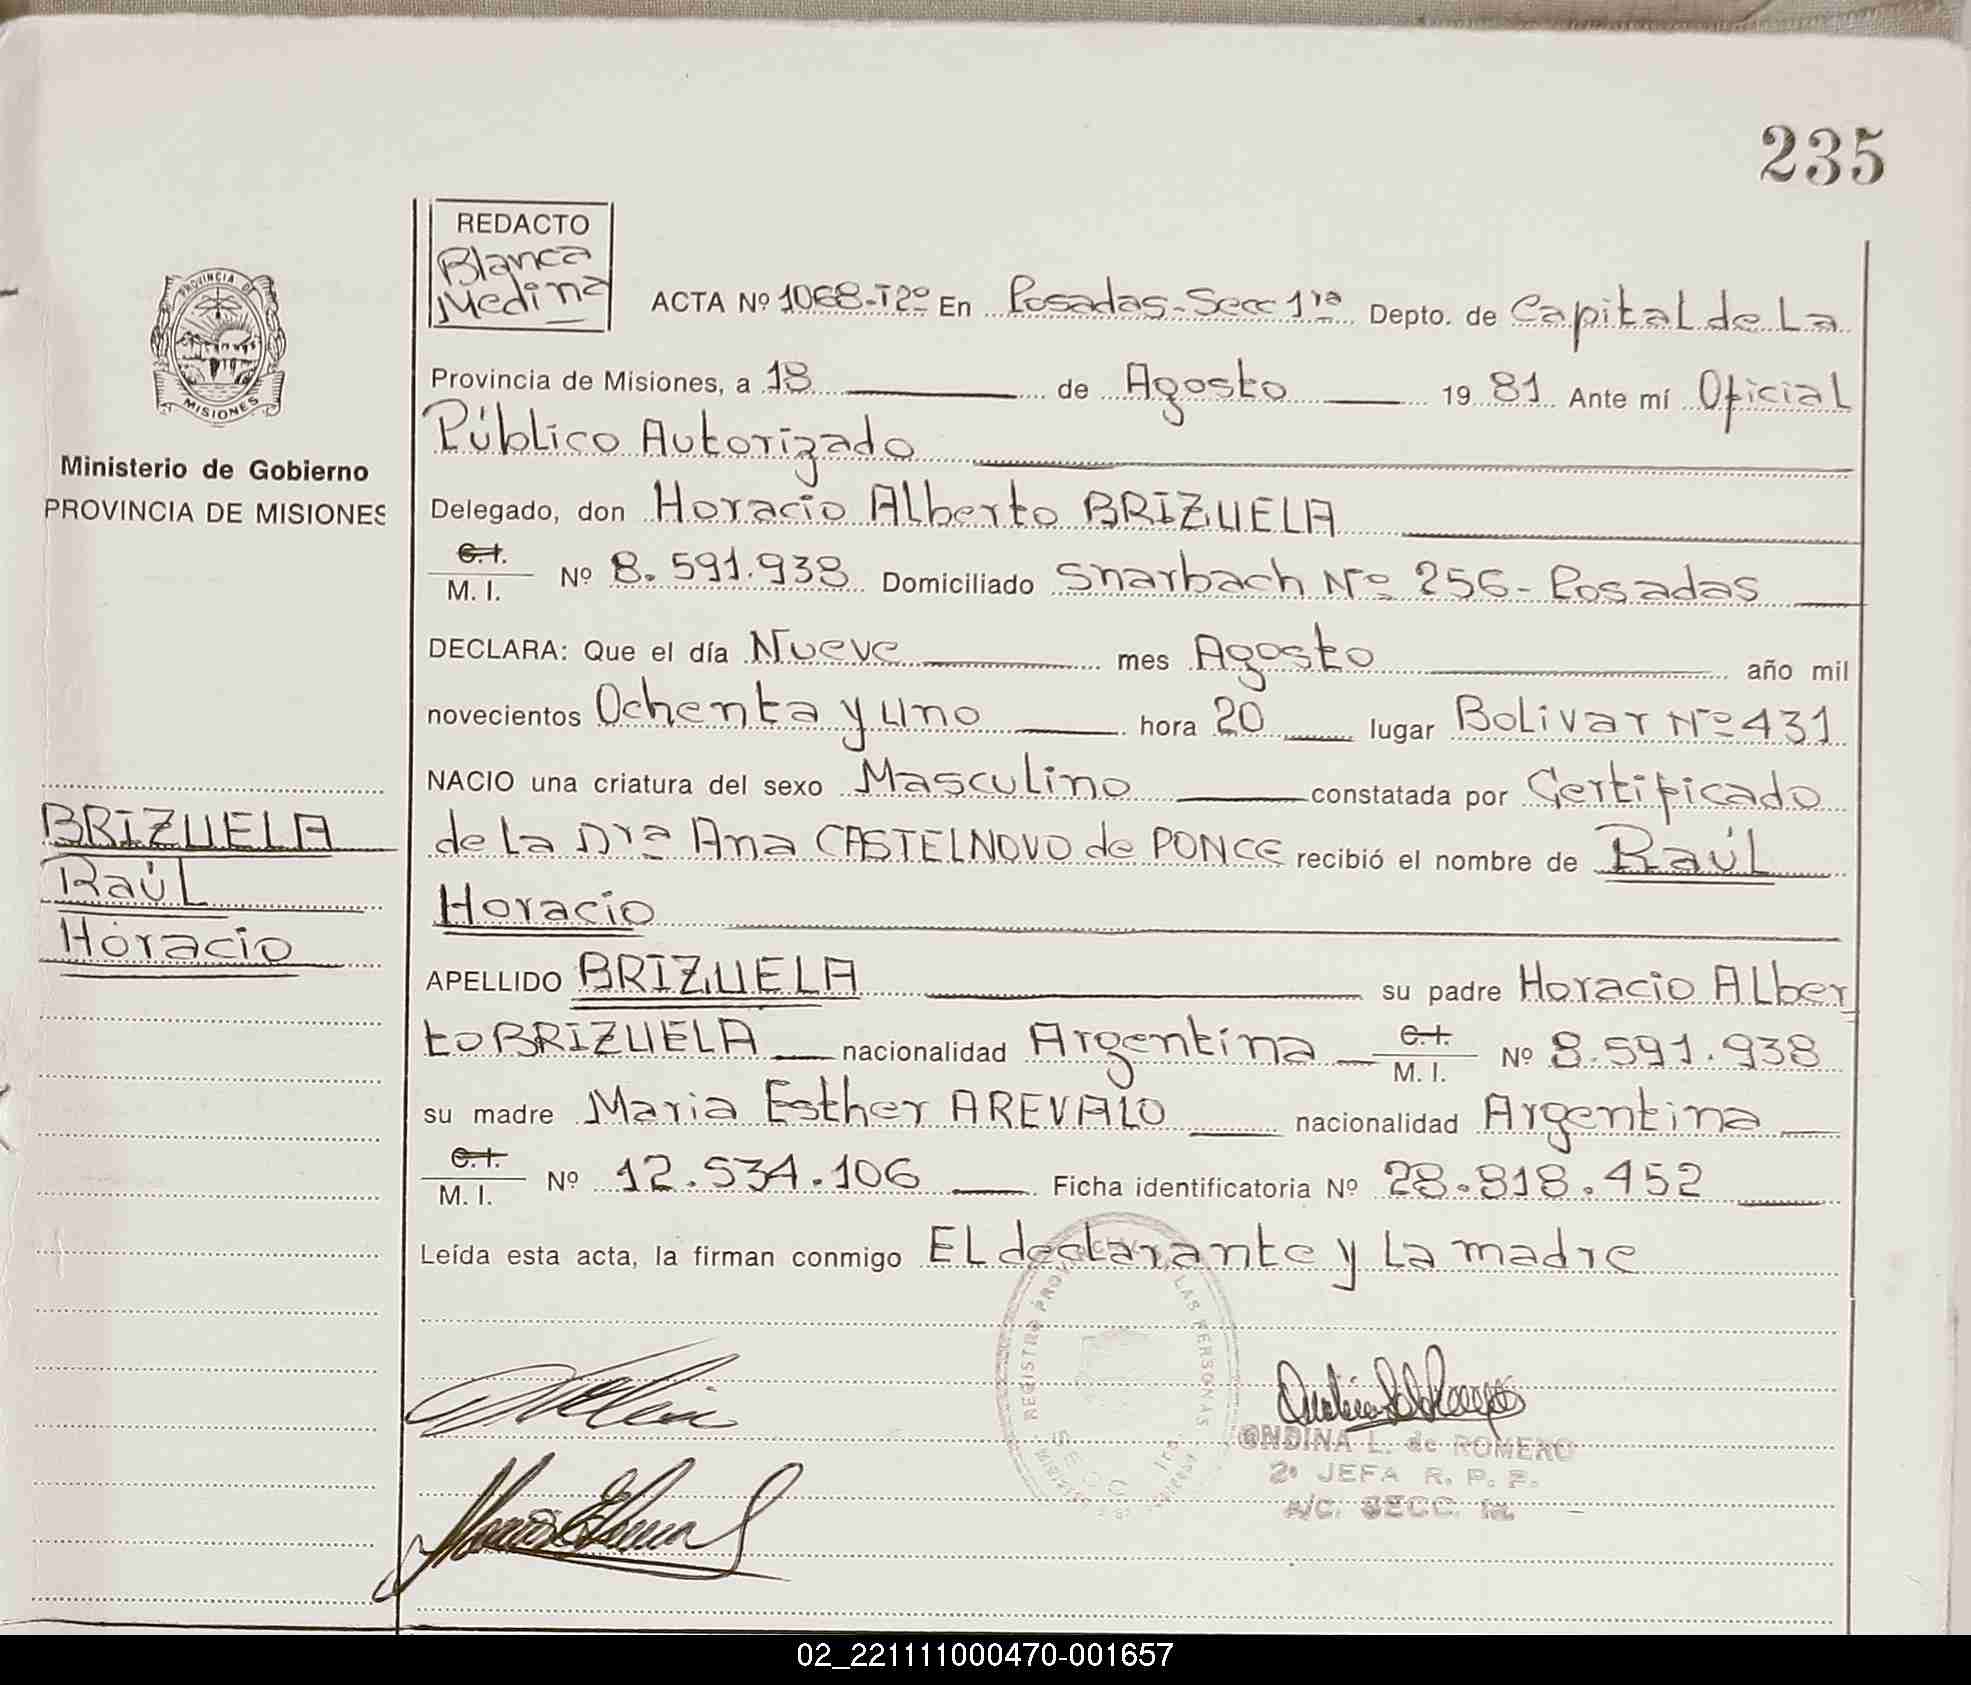 235
REDACTO
Blanca
Medina
ACTA Nº 1068-Tº2º En Posadas-Secc 1ra Depto. de Capital de La
PROVINCIA DE
MISIONES
Provincia de Misiones, a 18 de Agosto 19 81 Ante mí Oficial
Público Autorizado
Ministerio de Gobierno
PROVINCIA DE MISIONES
Delegado, don Horacio Alberto BRIZUELA
C.I.
M. I. Nº 8.591.938 Domiciliado Snarbach Nº 256- Posadas
DECLARA: Que el día Nueve mes Agosto año mil
novecientos Ochenta y uno hora 20 lugar Bolivar Nº 431
NACIO una criatura del sexo Masculino constatada por Certificado
de la Dra Ana CASTELNOVO de PONCE recibió el nombre de Raúl
Horacio
BRIZUELA
Raúl
Horacio
APELLIDO BRIZUELA su padre Horacio Alber
to BRIZUELA nacionalidad Argentina C.I.
M. I. Nº 8.591.938
su madre Maria Esther AREVALO nacionalidad Argentina
C.I.
M. I. Nº 12.534.106 Ficha identificatoria Nº 28.818.452
Leída esta acta, la firman conmigo El declarante y La madre
ONDINA L. de ROMERO
2º JEFA R. P. P.
A/C. SECC. 1a.
02_221111000470-001657